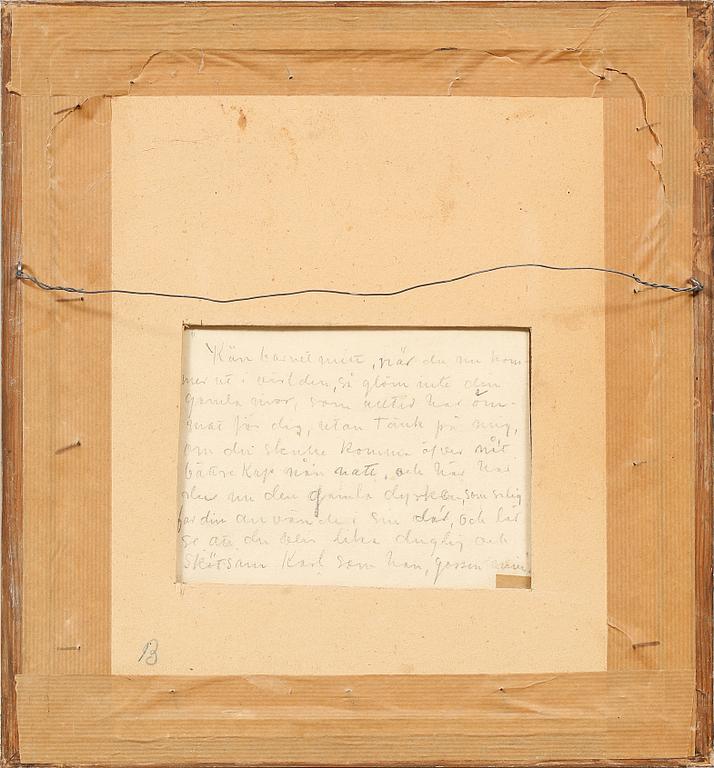 "Kära barnet mitt, når du nu kom-
mer ut i världen, så glöm inte den
gamla mor, som alltid har öm-
mat för dig, utan tänk på mig,
om du skulle komma öfver nåt
bättre Kap nån natt, och här har
du nu den gamla dyrken, som salig
far din använde i sin dar, och låt
se att du blir lika duglig och
skötsam Karl som han, gossen min.
B